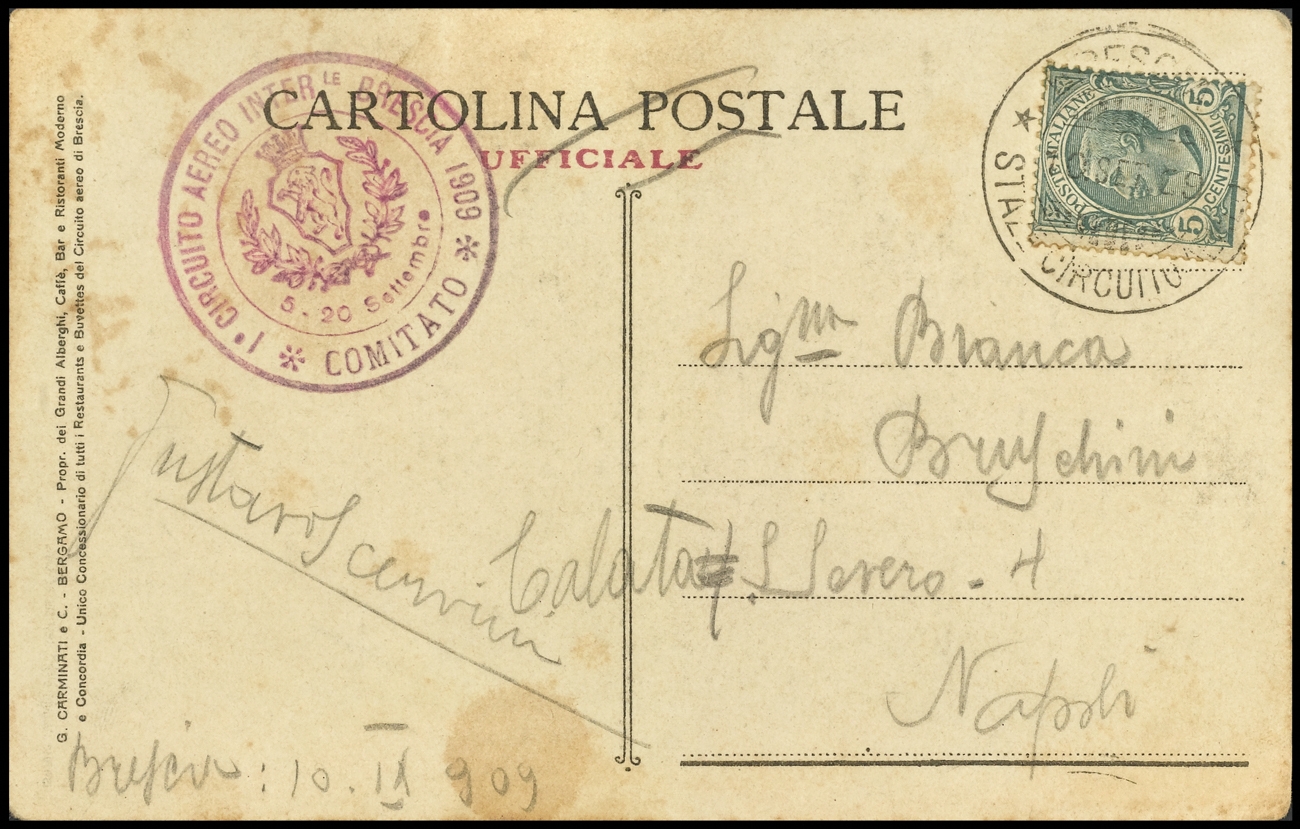 CARTOLINA POSTALE
UFFICIALE
1° CIRCUITO AEREO INTERLE BRESCIA 1909
5 - 20 Settembre
* COMITATO *
POSTE ITALIANE
5 CENTESIMI 5
STAZ. CIRCUITO
G. CARMINATI e C. - BERGAMO - Propr. dei Grandi Alberghi, Caffè, Bar e Ristoranti Moderno
e Concordia - Unico Concessionario di tutti i Restaurants e Buvettes del Circuito aereo di Brescia.
Signa Branca
Bruschini
Calata S. Severo - 4
Napoli
Brescia : 10. IX 909